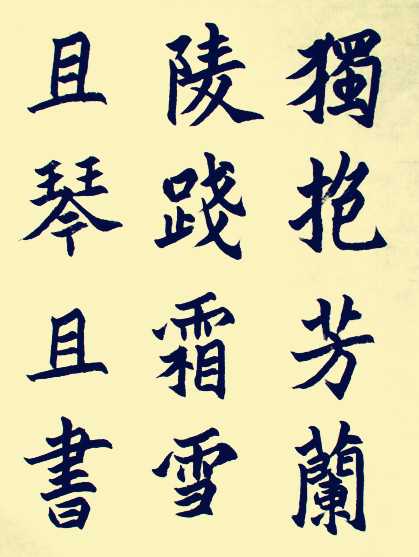 獨抱芳蘭
陵踐霜雪
且琴且書